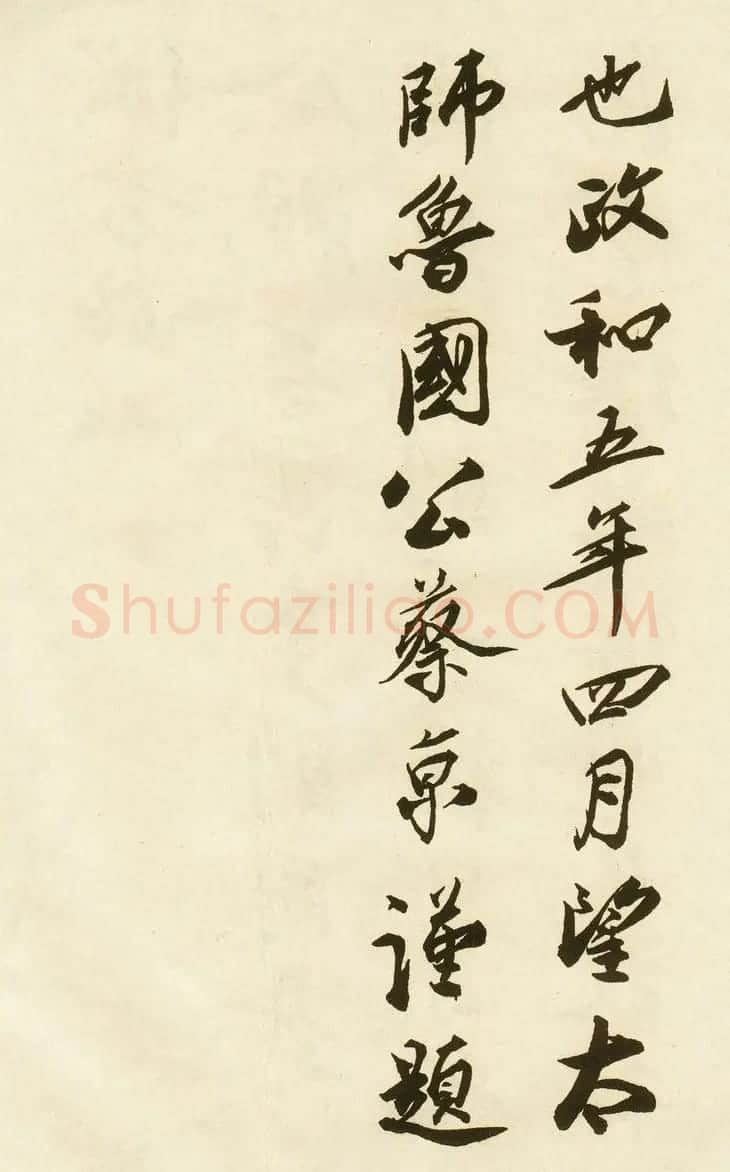 也政和五年四月望太
師魯國公蔡京謹題
Shufaziliao.COM